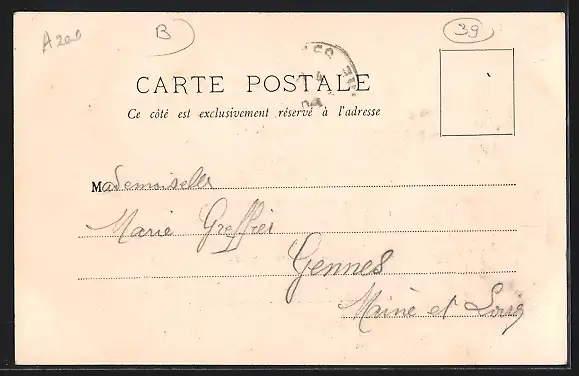 A200
B
39
CARTE POSTALE
Ce côté est exclusivement réservé à l'adresse
Mademoiselle
Marie Greffier
Gennes
Maine et Loire